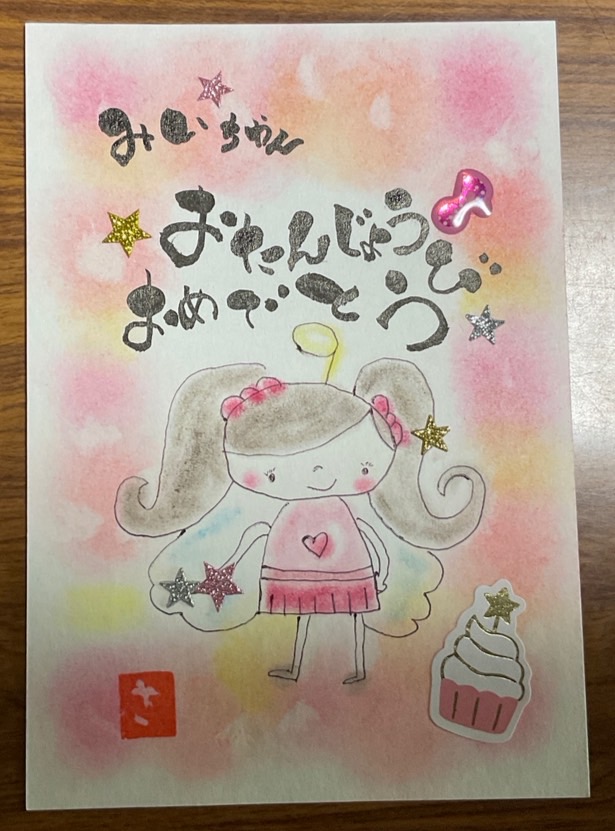 みいちゃん
おたんじょうび
おめでとう